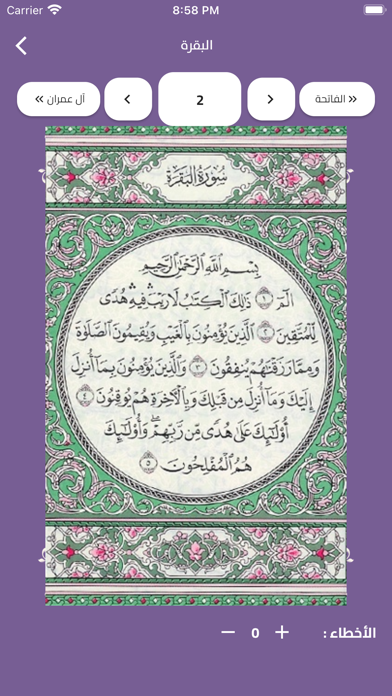 Carrier 8:58 PM
البقرة
« الفاتحة
2
آل عمران »
سورة البقرة
بسم الله الرحمن الرحيم
الٓمٓ ١ ذَٰلِكَ ٱلْكِتَٰبُ لَا رَيْبَ ۛ فِيهِ ۛ هُدًى
لِّلْمُتَّقِينَ ٢ ٱلَّذِينَ يُؤْمِنُونَ بِٱلْغَيْبِ وَيُقِيمُونَ ٱلصَّلَوٰةَ
وَمِمَّا رَزَقْنَٰهُمْ يُنفِقُونَ ٣ وَٱلَّذِينَ يُؤْمِنُونَ بِمَآ أُنزِلَ
إِلَيْكَ وَمَآ أُنزِلَ مِن قَبْلِكَ وَبِٱلْءَاخِرَةِ هُمْ يُوقِنُونَ ٤
أُو۟لَٰٓئِكَ عَلَىٰ هُدًى مِّن رَّبِّهِمْ ۖ وَأُو۟لَٰٓئِكَ
هُمُ ٱلْمُفْلِحُونَ ٥
الأخطاء : + 0 −